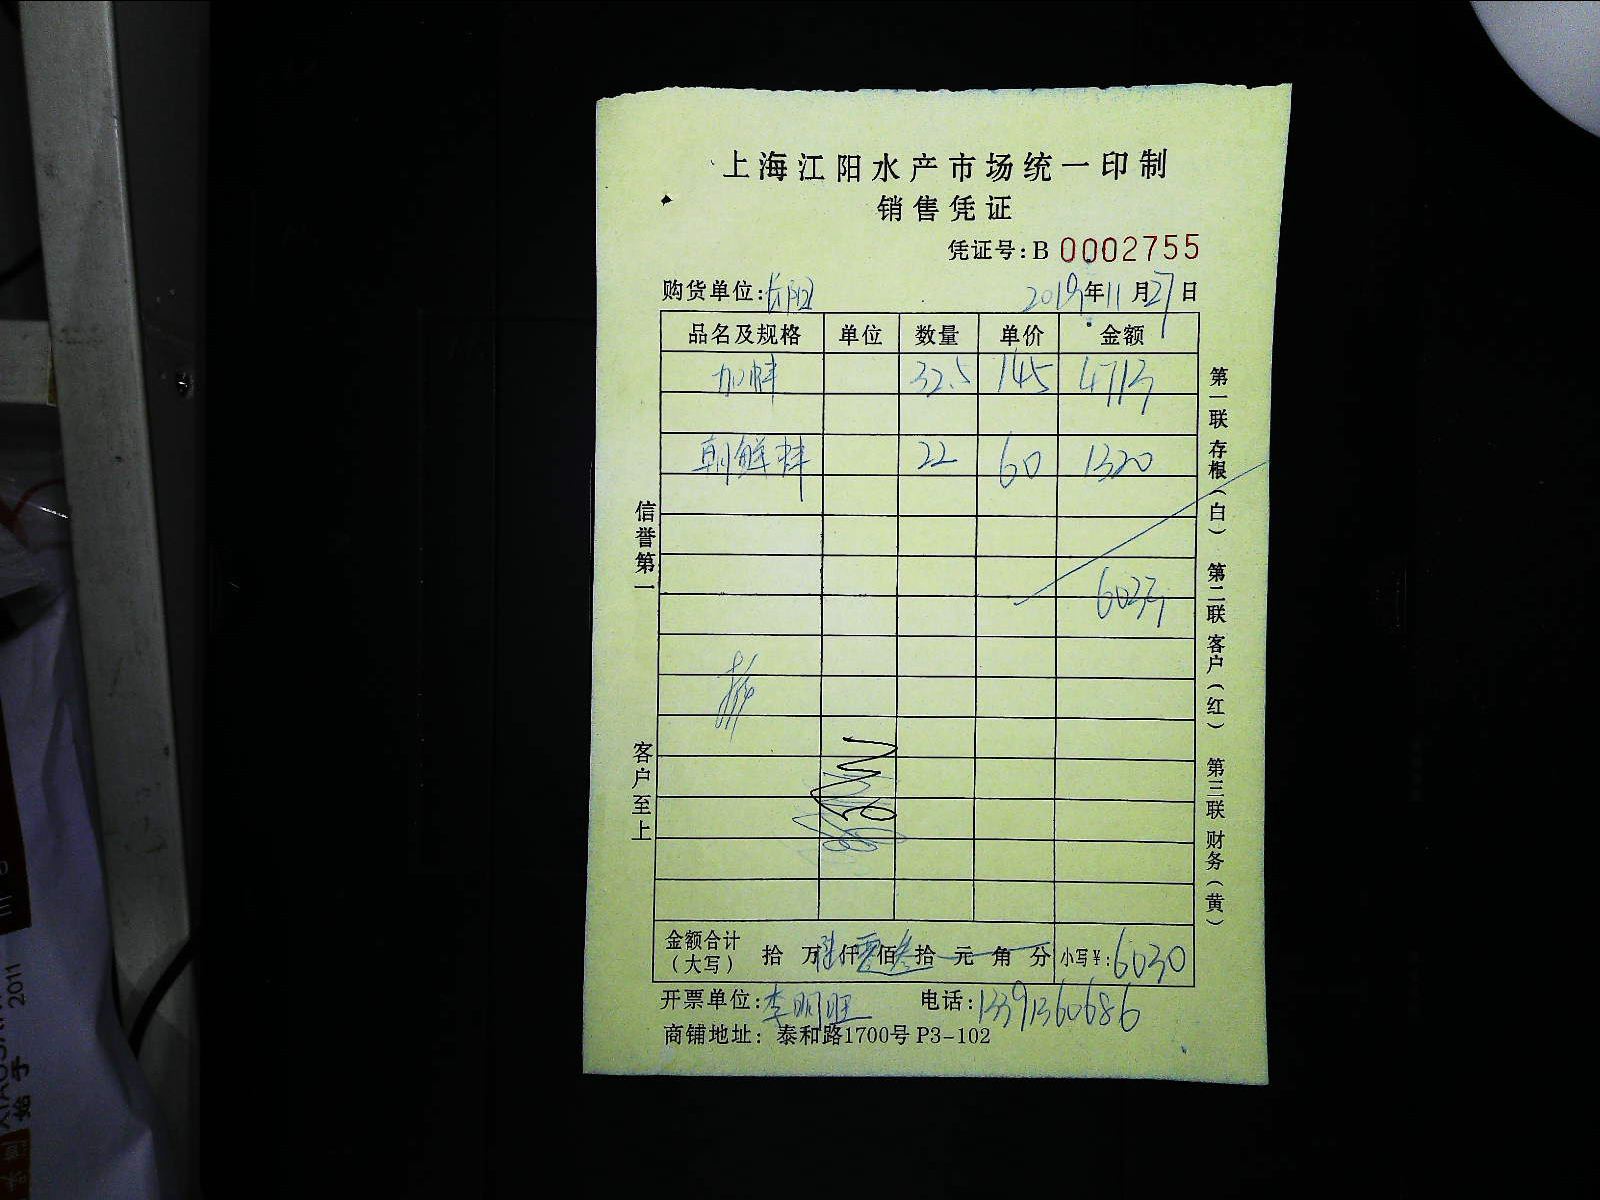 上海江阳水产市场统一印制
销售凭证
凭证号:B 0002755
购货单位:
2019年11月27日
品名及规格 单位 数量 单价 金额
加蚌 32.5 145 4713
朝鲜蚌 22 60 1320
6033
信誉第一
客户至上
第一联存根(白) 第二联客户(红) 第三联财务(黄)
金额合计(大写) 拾 万陆仟零佰叁拾 元 角 分 小写¥:6030
开票单位:李明旺 电话:13391360686
商铺地址: 泰和路1700号 P3-102
2011
始于